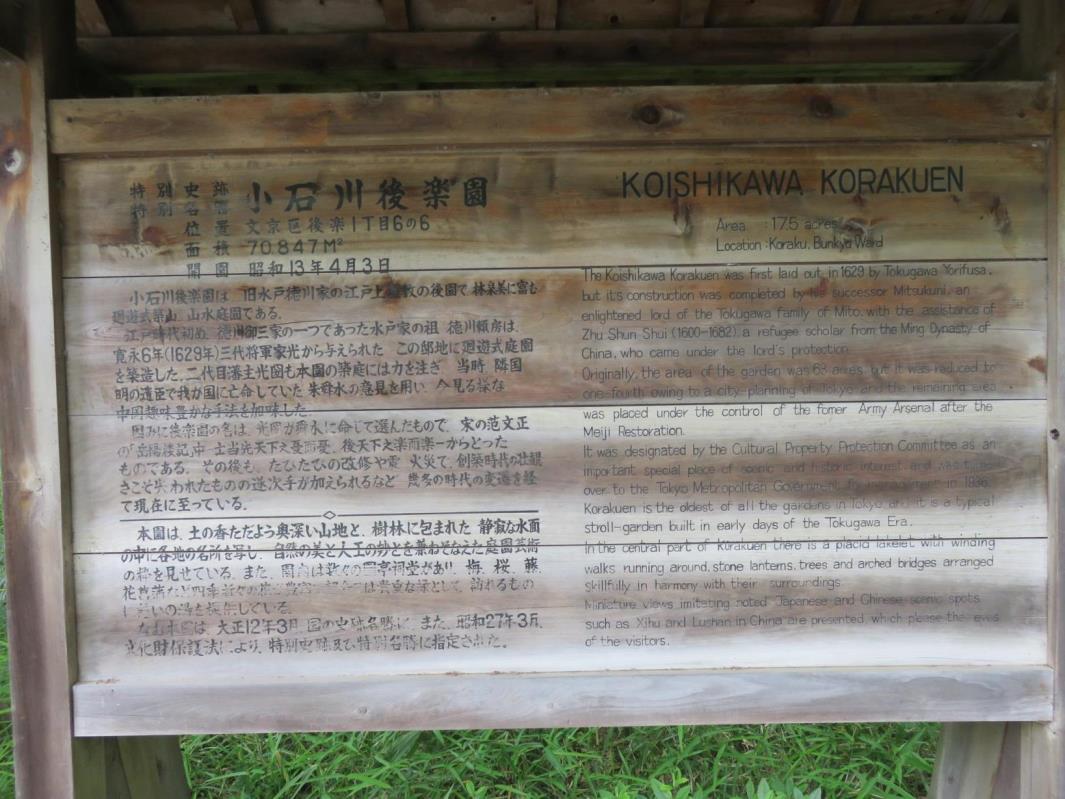 特別史跡
特別名勝
小石川後楽園
位置 文京区後楽1丁目6の6
面積 70.847M²
開園 昭和13年4月3日
小石川後楽園は 旧水戸徳川家の江戸上屋敷の後園で 林泉美に富む
廻遊式築山 山水庭園である.
江戸時代初め 徳川御三家の一つであった水戸家の祖 徳川頼房は,
寛永6年(1629年)三代将軍家光から与えられた この邸地に廻遊式庭園
を築造した.二代目藩主光圀も本園の築庭には力を注ぎ 当時 隣国
明の遺臣で我が国に亡命していた 朱舜水の意見を用い 今見る様な
中国趣味豊かな手法を加味した.
因みに後楽園の名は, 光圀が舜水に命じて選んだもので, 宋の范文正
の「岳陽楼記」中 士当先天下之憂而憂, 後天下之楽而楽 からとった
ものである. その後も, たびたびの改修や震 火災で, 創築時代の壮観
さこそ失われたものの逐次手が加えられるなど 幾多の時代の変遷を経
て現在に至っている.
本園は, 土の香ただよう奥深い山地と, 樹林に包まれた 静寂な水面
の中に各地の名所を写し, 自然の美と人工の妙とを兼ねそなえた庭園芸術
の粋を見せている. また, 園内は数々の園亭祠堂があり, 梅, 桜, 藤,
花菖蒲など四季 は貴重な緑として, 訪れるもの
に憩いの場を提供している.
なお本園は, 大正12年3月 国の史跡名勝に, また, 昭和27年3月,
文化財保護法により, 特別史跡及び特別名勝に指定された.
KOISHIKAWA KORAKUEN
Area : 17.5 acres
Location : Koraku, Bunkyo Ward
The Koishikawa Korakuen was first laid out in 1629 by Tokugawa Yorifusa,
but its construction was completed by his successor Mitsukuni, an
enlightened lord of the Tokugawa family of Mito, with the assistance of
Zhu Shun Shui (1600-1682), a refugee scholar from the Ming Dynasty of
China, who came under the lord's protection.
Originally, the area of the garden was 63 acres, but it was reduced to
one-fourth owing to a city planning of Tokyo and the remaining area
was placed under the control of the fomer Army Arsenal after the
Meiji Restoration.
It was designated by the Cultural Property Protection Committee as an
important special place of scenic and historic interest, and was
over to the Tokyo Metropolitan Government for management in 1936.
Korakuen is the oldest of all the gardens in Tokyo and it is a typical
stroll-garden built in early days of the Tokugawa Era.
In the central part of Korakuen there is a placid lakelet with winding
walks running around, stone lanterns, trees and arched bridges arranged
skillfully in harmony with their surroundings.
Miniature views imitating noted Japanese and Chinese scenic spots
such as Xihu and Lushan in China are presented which please the eyes
of the visitors.